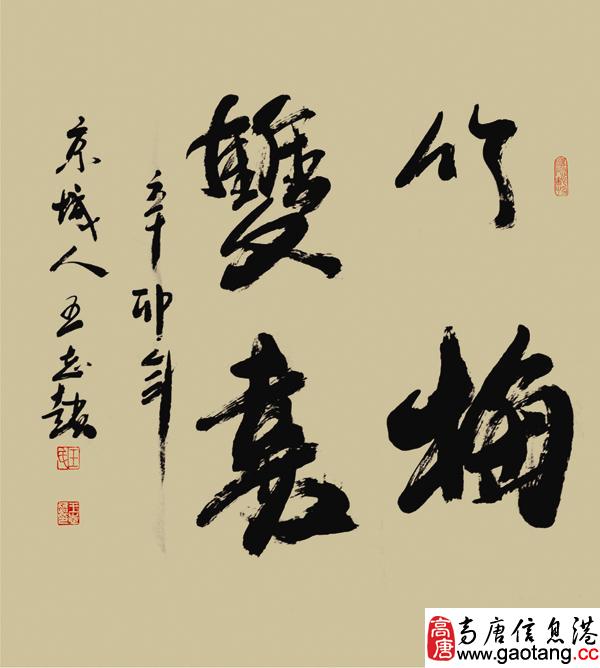 竹梅
雙喜
辛卯年
京城人王志
高唐
高唐信息港
www.gaotang.cc